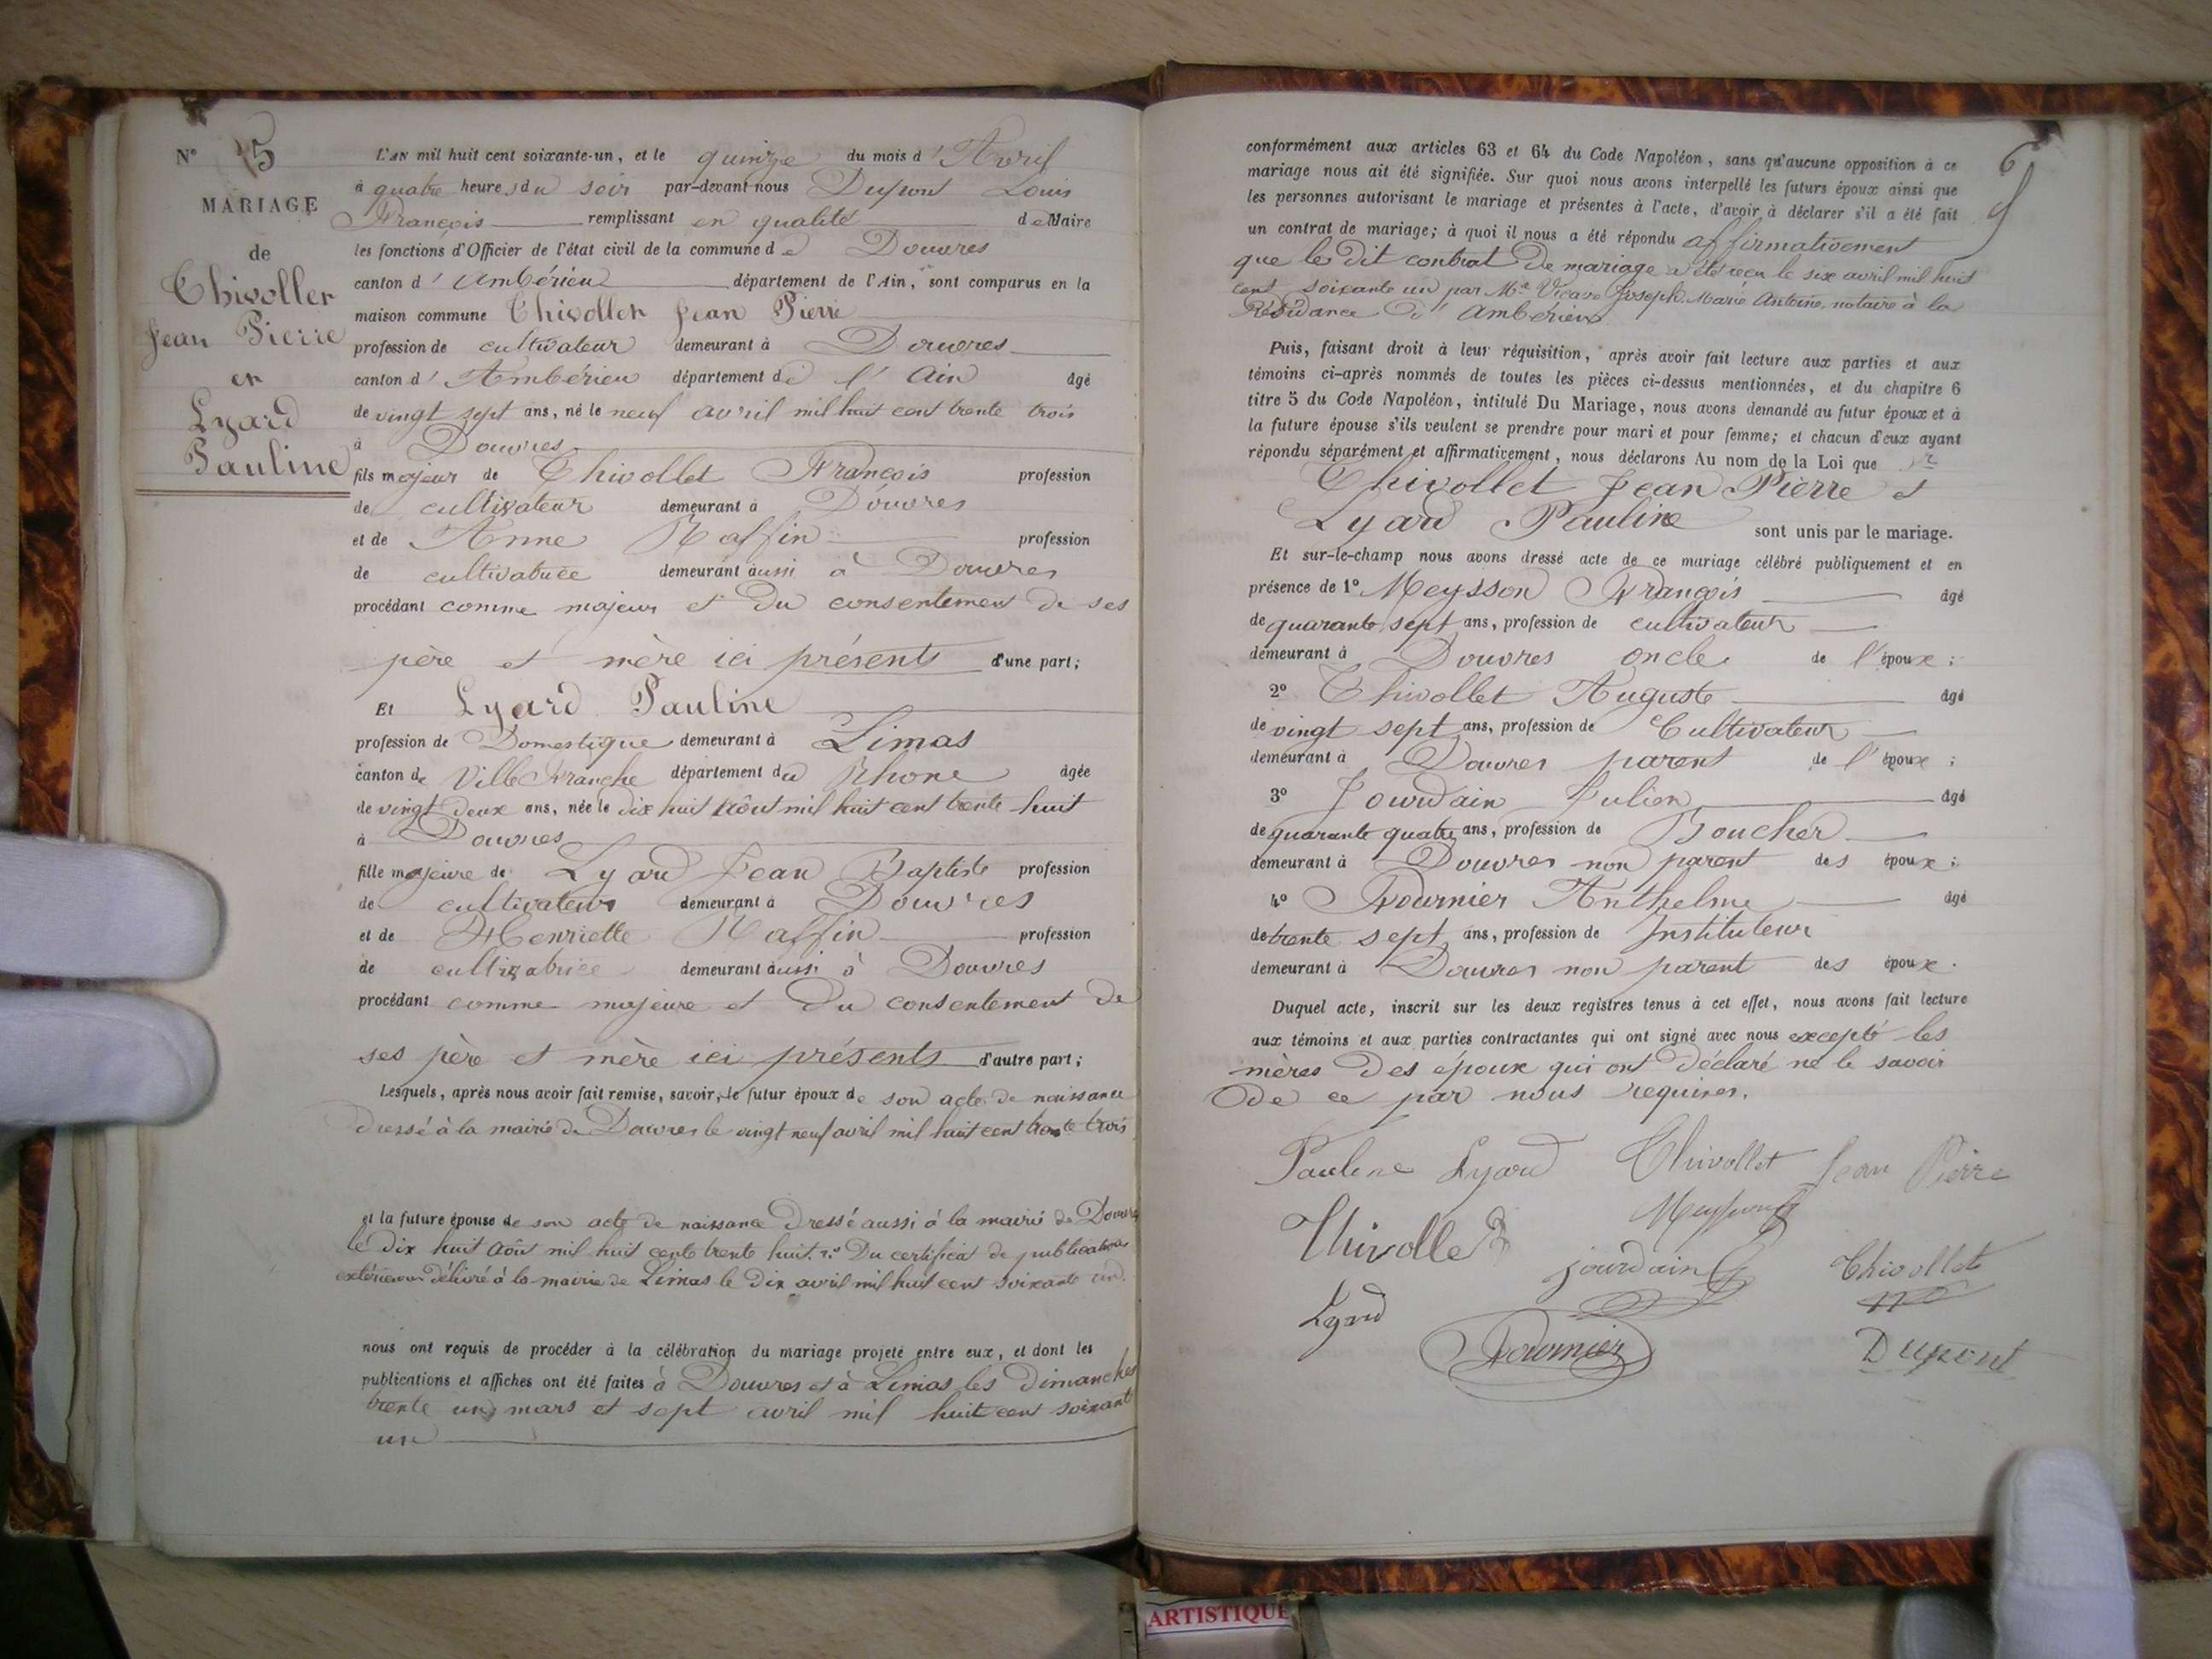 N° 5
MARIAGE
de
Thivollet
Jean Pierre
et
Lyard
Pauline
L'AN mil huit cent soixante-un, et le quinze du mois d'Avril
à quatre heures du soir par-devant nous Dupont Louis
François remplissant en qualité de Maire
les fonctions d'Officier de l'état civil de la commune de Douvres
canton d'Ambérieu département de l'Ain, sont comparus en la
maison commune Thivollet Jean Pierre
profession de cultivateur demeurant à Douvres
canton d'Ambérieu département de l'Ain âgé
de vingt sept ans, né le neuf avril mil huit cent trente trois
à Douvres
fils majeur de Thivollet François profession
de cultivateur demeurant à Douvres
et de Anne Raffin profession
de cultivatrice demeurant aussi à Douvres
procédant comme majeur et du consentement de ses
père et mère ici présents d'une part;
Et Lyard Pauline
profession de Domestique demeurant à Limas
canton de Ville Franche département du Rhone âgée
de vingt deux ans, née le dix huit août mil huit cent trente huit
à Douvres
fille majeure de Lyard Jean Baptiste profession
de cultivateur demeurant à Douvres
et de Henriette Raffin profession
de cultivatrice demeurant aussi à Douvres
procédant comme majeure et du consentement de
ses père et mère ici présents d'autre part;
Lesquels, après nous avoir fait remise, savoir, le futur époux de son acte de naissance
dressé à la mairie de Douvres le vingt neuf avril mil huit cent trente trois
et la future épouse de son acte de naissance dressé aussi à la mairie de Douvres
le dix huit août mil huit cent trente huit. 2° Du certificat de publications
extérieures délivré à la mairie de Limas le dix avril mil huit cent soixante un.
nous ont requis de procéder à la célébration du mariage projeté entre eux, et dont les
publications et affiches ont été faites à Douvres et à Limas les dimanches
trente un mars et sept avril mil huit cent soixante
un
6
conformément aux articles 63 et 64 du Code Napoléon, sans qu'aucune opposition à ce
mariage nous ait été signifiée. Sur quoi nous avons interpellé les futurs époux ainsi que
les personnes autorisant le mariage et présentes à l'acte, d'avoir à déclarer s'il a été fait
un contrat de mariage; à quoi il nous a été répondu affirmativement
que le dit contrat de mariage a été reçu le six avril mil huit
cent soixante un par Me Vicaire Joseph Marie Antoine, notaire à la
Résidance d'Ambérieu
Puis, faisant droit à leur réquisition, après avoir fait lecture aux parties et aux
témoins ci-après nommés de toutes les pièces ci-dessus mentionnées, et du chapitre 6
titre 5 du Code Napoléon, intitulé Du Mariage, nous avons demandé au futur époux et à
la future épouse s'ils veulent se prendre pour mari et pour femme; et chacun d'eux ayant
répondu séparément et affirmativement, nous déclarons Au nom de la Loi que
Thivollet Jean Pierre et
Lyard Pauline sont unis par le mariage.
Et sur-le-champ nous avons dressé acte de ce mariage célébré publiquement et en
présence de 1° Meysson François âgé
de quarante sept ans, profession de cultivateur
demeurant à Douvres oncle de l'époux;
2° Thivollet Auguste âgé
de vingt sept ans, profession de Cultivateur
demeurant à Douvres parent de l'époux;
3° Jourdain Julien âgé
de quarante quatre ans, profession de Boucher
demeurant à Douvres non parent des époux;
4° Fournier Anthelme âgé
de trente sept ans, profession de Instituteur
demeurant à Douvres non parent des époux.
Duquel acte, inscrit sur les deux registres tenus à cet effet, nous avons fait lecture
aux témoins et aux parties contractantes qui ont signé avec nous excepté les
mères des époux qui ont déclaré ne le savoir
de ce par nous requises.
Pauline Lyard Thivollet Jean Pierre
Thivollet Meysson
jourdain Thivollet
Lyard Fournier Dupont
ARTISTIQUE